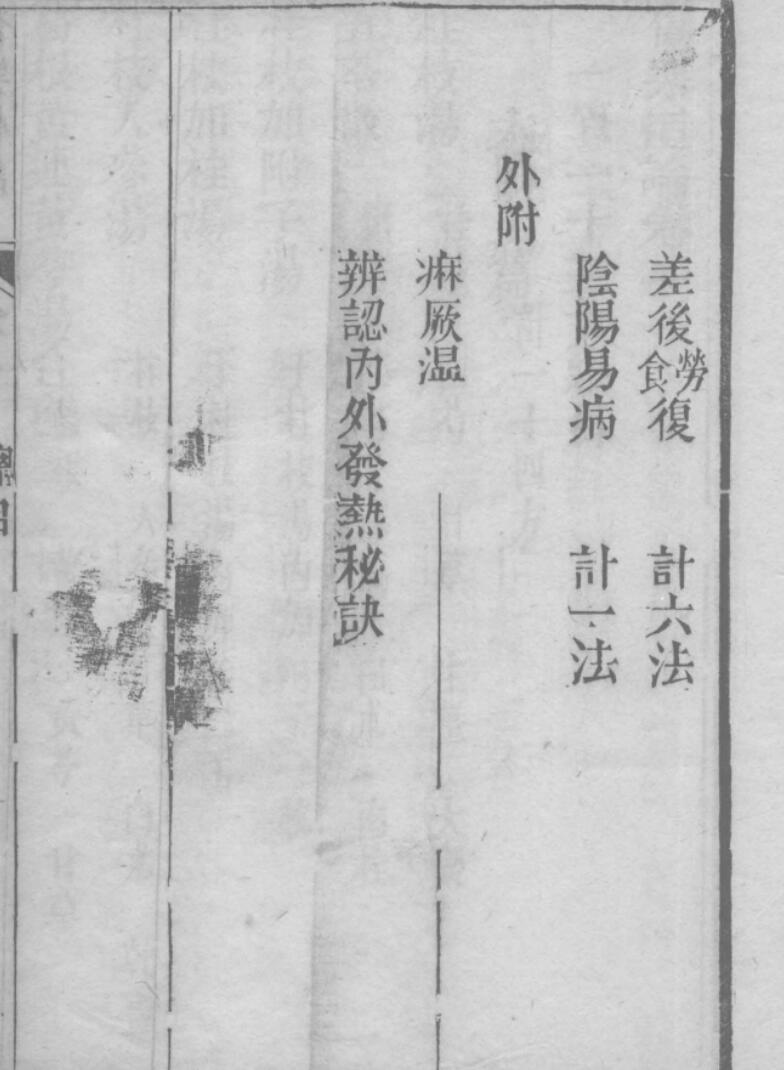 差後勞食復　計六法
陰陽易病　計一法
外附
痳厥温
辨認内外發熱秘訣